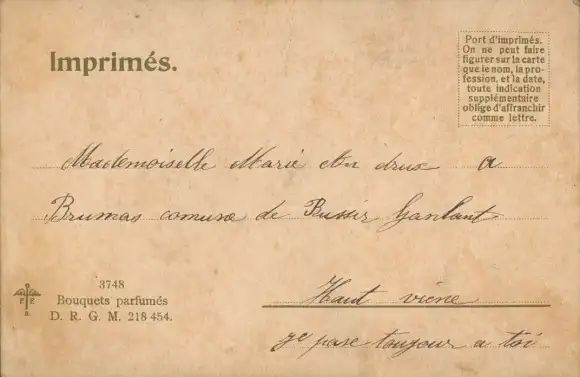 Imprimés.
Port d'imprimés.
On ne peut faire
figurer sur la carte
que le nom, la pro-
fession, et la date,
toute indication
supplémentaire
oblige d'affranchir
comme lettre.
Mademoiselle Marie An drus a
Brumas comune de Bussir Ganlant
Haut viene
je pase toujour a toi
3748
Bouquets parfumés
D. R. G. M. 218 454.